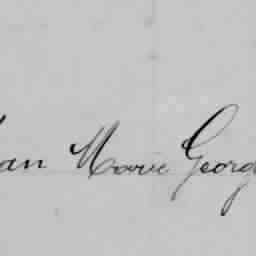 an Marie Georg